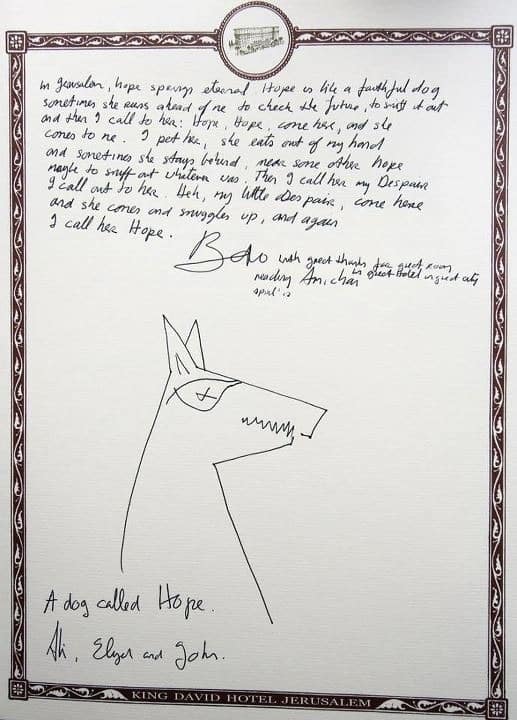 In Jerusalem, hope springs eternal. Hope is like a faithful dog
sometimes she runs ahead of me to check the future, to sniff it out
and then I call to her: Hope, Hope, come here, and she
comes to me. I pet her, she eats out of my hand
and sometimes she stays behind, near some other hope
maybe to sniff out whatever was. Then I call her my Despair
I call out to her. Heh, my little Despair, come here
and she comes and snuggles up, and again
I call her Hope.
Bono with great thanks for great room
in great Hotel in great city
reading Amichai
april '12
A dog called Hope.
Ali, and John.
KING DAVID HOTEL JERUSALEM